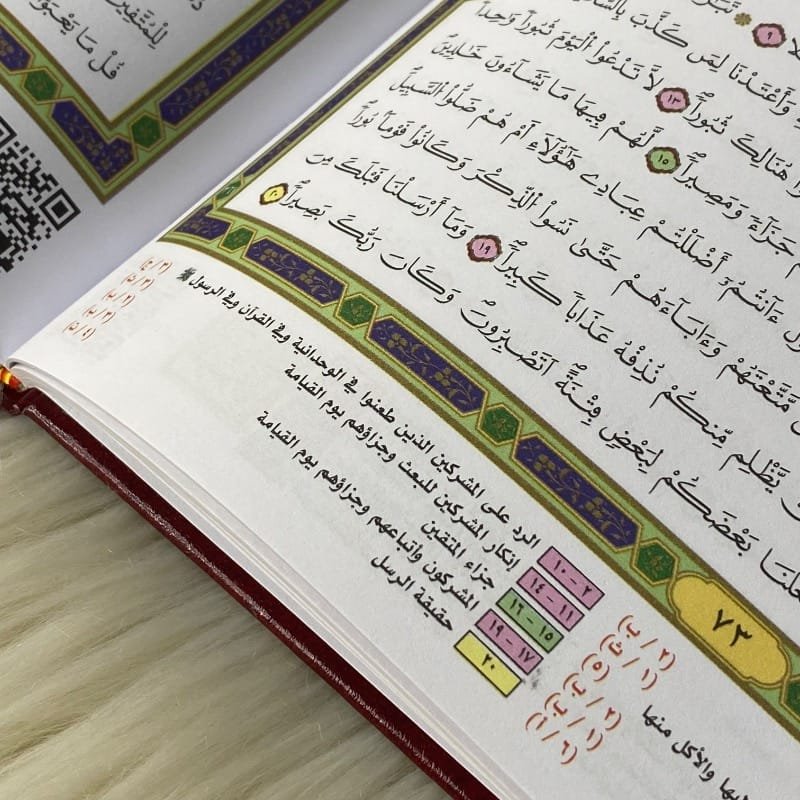 لِلْمُتَّقِينَ
قُلْ مَا يَعْبَؤُا
٩
وَأَعْتَدْنَا لِمَن كَذَّبَ
هُنَالِكَ ثُبُورًا ١٣ لَّا تَدْعُوا۟ ٱلْيَوْمَ ثُبُورًا وَٰحِدًا
جَزَآءً وَمَصِيرًا ١٥ لَّهُمْ فِيهَا مَا يَشَآءُونَ خَٰلِدِينَ
ءَأَنتُمْ أَضْلَلْتُمْ عِبَادِى هَٰٓؤُلَآءِ أَمْ هُمْ ضَلُّوا۟ ٱلسَّبِيلَ
مَّتَّعْتَهُمْ وَءَابَآءَهُمْ حَتَّىٰ نَسُوا۟ ٱلذِّكْرَ وَكَانُوا۟ قَوْمًۢا بُورًا
يَظْلِم مِّنكُمْ نُذِقْهُ عَذَابًا كَبِيرًا ١٩ وَمَآ أَرْسَلْنَا قَبْلَكَ مِنَ
بَعْضَكُمْ لِبَعْضٍ فِتْنَةً أَتَصْبِرُونَ وَكَانَ رَبُّكَ بَصِيرًا ٢٠
٧٣
٢ - ١٠ الرد على المشركين الذين طعنوا في الوحدانية وفي القرآن وفي الرسول ﷺ
١١ - ١٤ إنكار المشركين للبعث وجزاؤهم يوم القيامة
١٥ - ١٦ جزاء المتقين
١٧ - ١٩ المشركون وأتباعهم وجزاؤهم يوم القيامة
٢٠ حقيقة الرسل
والأكل منها